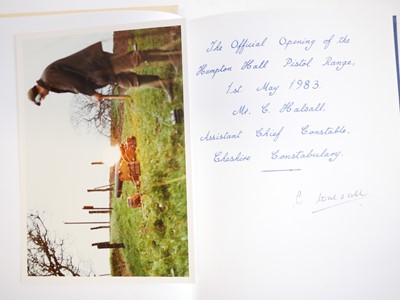 The Official Opening of the
Hampton Hall Pistol Range,
1st May 1983.
Mr. C. Halsall.
Assistant Chief Constable,
Cheshire Constabulary.